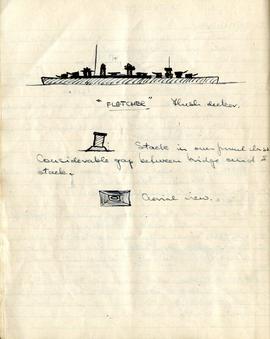 "FLETCHER" Flush decker.
Stack in
Considerable gap between bridge and
stack.
Aerial view.